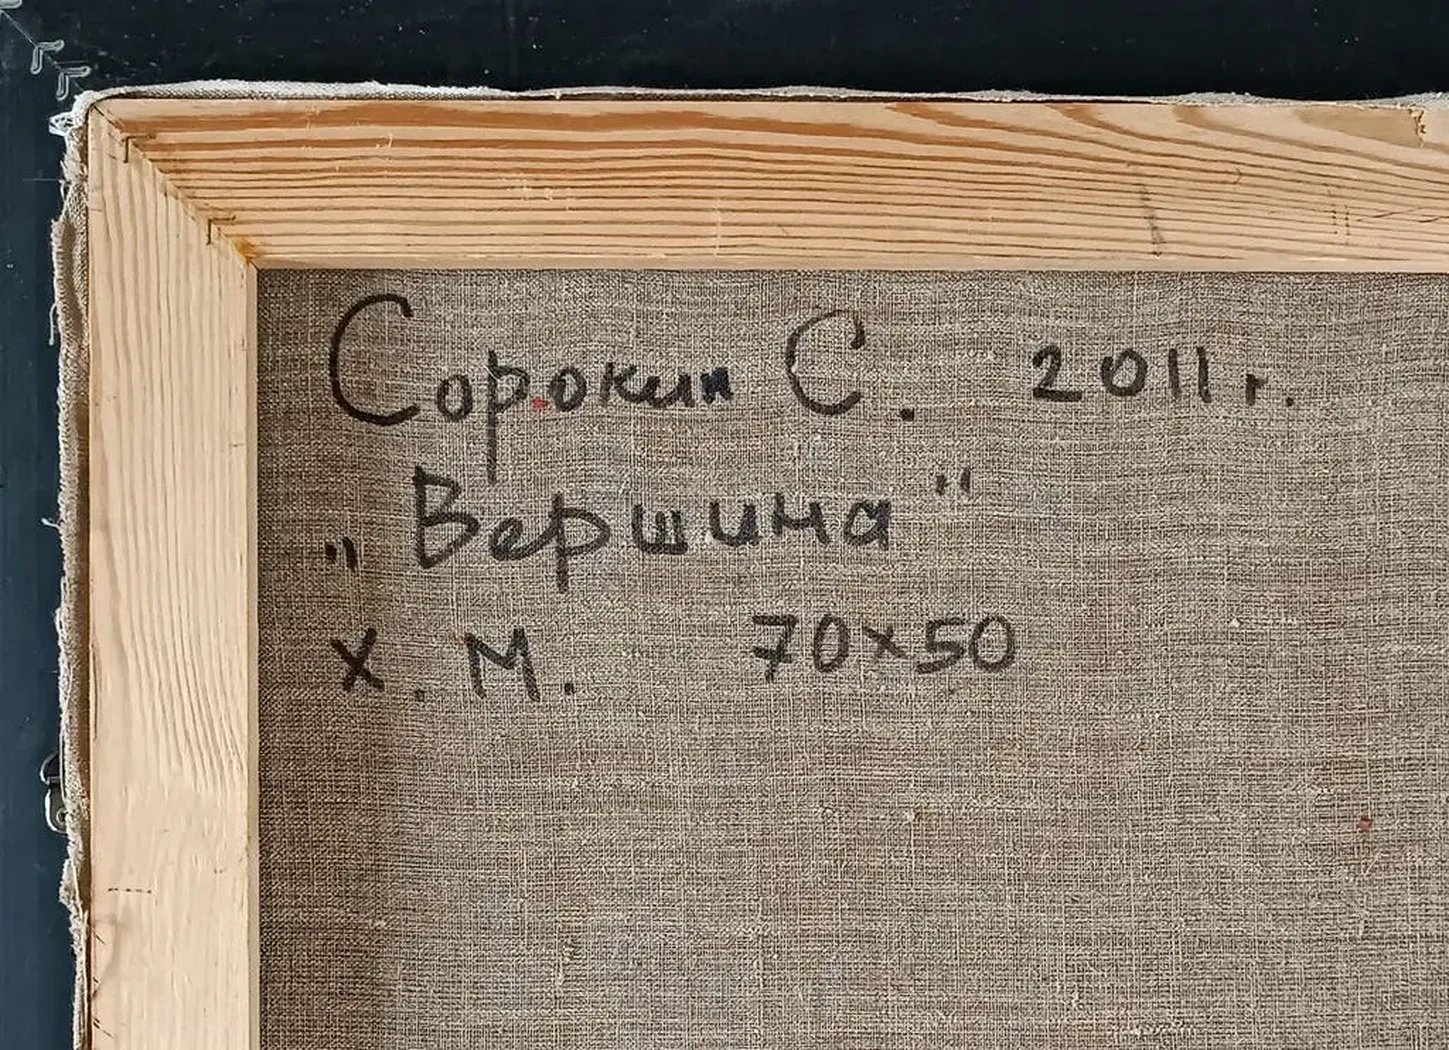 Сорокин С. 2011 г.
„Вершина"
х. м. 70х50